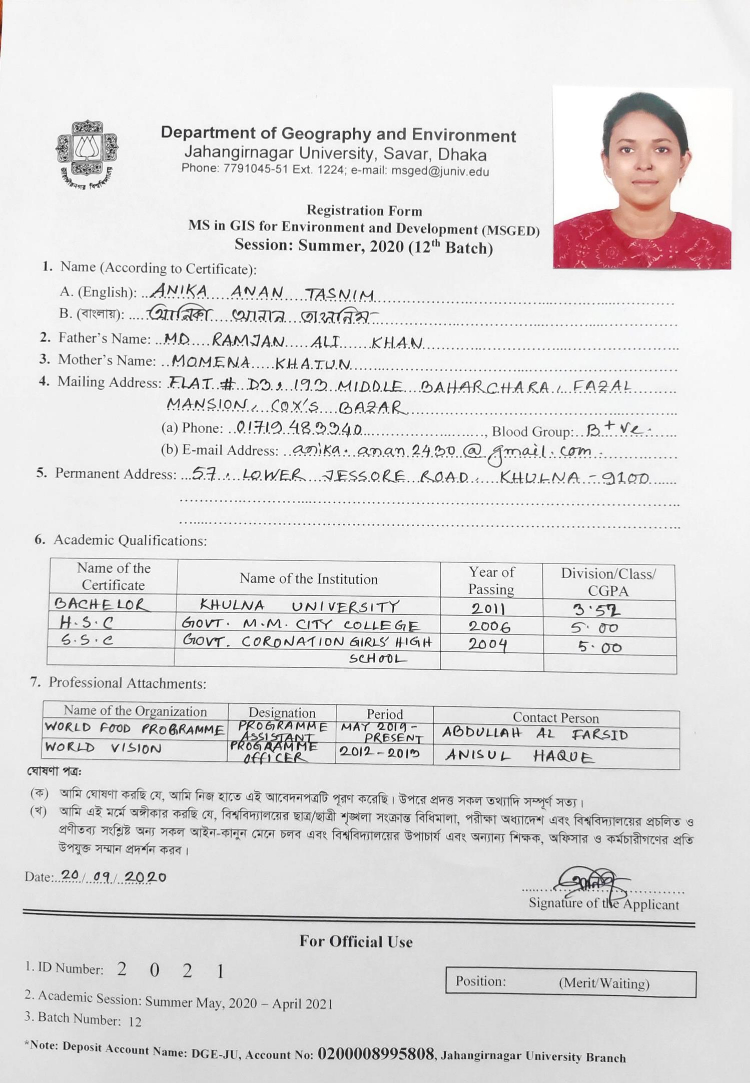 Department of Geography and Environment
Jahangirnagar University, Savar, Dhaka
Phone: 7791045-51 Ext. 1224; e-mail: msged@juniv.edu
Registration Form
MS in GIS for Environment and Development (MSGED)
Session: Summer, 2020 (12th Batch)
1. Name (According to Certificate):
A. (English): ANIKA ANAN TASNIM
B. (বাংলায়): আনিকা আনান তাসনিম
2. Father's Name: MD RAMJAN ALI KHAN
3. Mother's Name: MOMENA KHATUN
4. Mailing Address: FLAT # D3, 193 MIDDLE BAHARCHARA, FAZAL
MANSION, COX'S BAZAR
(a) Phone: 01719483340, Blood Group: B+ve.
(b) E-mail Address: anika.anan2430@gmail.com
5. Permanent Address: 57, LOWER JESSORE ROAD, KHULNA-9100
6. Academic Qualifications:
Name of the Certificate Name of the Institution Year of Passing Division/Class/CGPA
BACHELOR KHULNA UNIVERSITY 2011 3.57
H.S.C GOVT. M.M. CITY COLLEGE 2006 5.00
S.S.C GOVT. CORONATION GIRLS' HIGH 2004 5.00
SCHOOL
7. Professional Attachments:
Name of the Organization Designation Period Contact Person
WORLD FOOD PROGRAMME PROGRAMME ASSISTANT MAY 2019-PRESENT ABDULLAH AL FARSID
WORLD VISION PROGRAMME OFFICER 2012-2019 ANISUL HAQUE
ঘোষণা পত্র:
(ক) আমি ঘোষণা করছি যে, আমি নিজ হাতে এই আবেদনপত্রটি পূরণ করেছি। উপরে প্রদত্ত সকল তথ্যাদি সম্পূর্ণ সত্য।
(খ) আমি এই মর্মে অঙ্গীকার করছি যে, বিশ্ববিদ্যালয়ের ছাত্র/ছাত্রী শৃঙ্খলা সংক্রান্ত বিধিমালা, পরীক্ষা অধ্যাদেশ এবং বিশ্ববিদ্যালয়ের প্রচলিত ও
প্রণীতব্য সংশ্লিষ্ট অন্য সকল আইন-কানুন মেনে চলব এবং বিশ্ববিদ্যালয়ের উপাচার্য এবং অন্যান্য শিক্ষক, অফিসার ও কর্মচারীগণের প্রতি
উপযুক্ত সম্মান প্রদর্শন করব।
Date: 20/09/2020
Signature of the Applicant
For Official Use
1. ID Number: 2 0 2 1
Position: (Merit/Waiting)
2. Academic Session: Summer May, 2020 – April 2021
3. Batch Number: 12
*Note: Deposit Account Name: DGE-JU, Account No: 0200008995808, Jahangirnagar University Branch